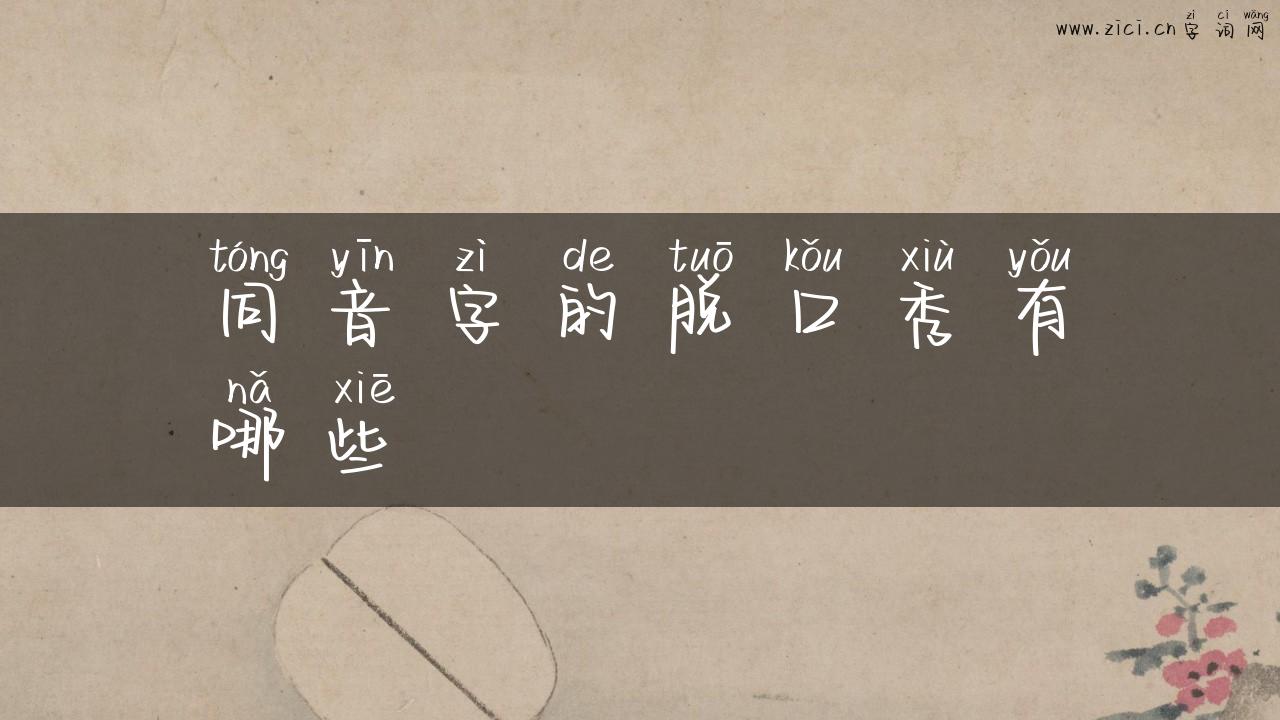 zì cí wǎng
www.zici.cn 字词网
tóng yīn zì de tuō kǒu xiù yǒu
同音字的脱口秀有
nǎ xiē
哪些